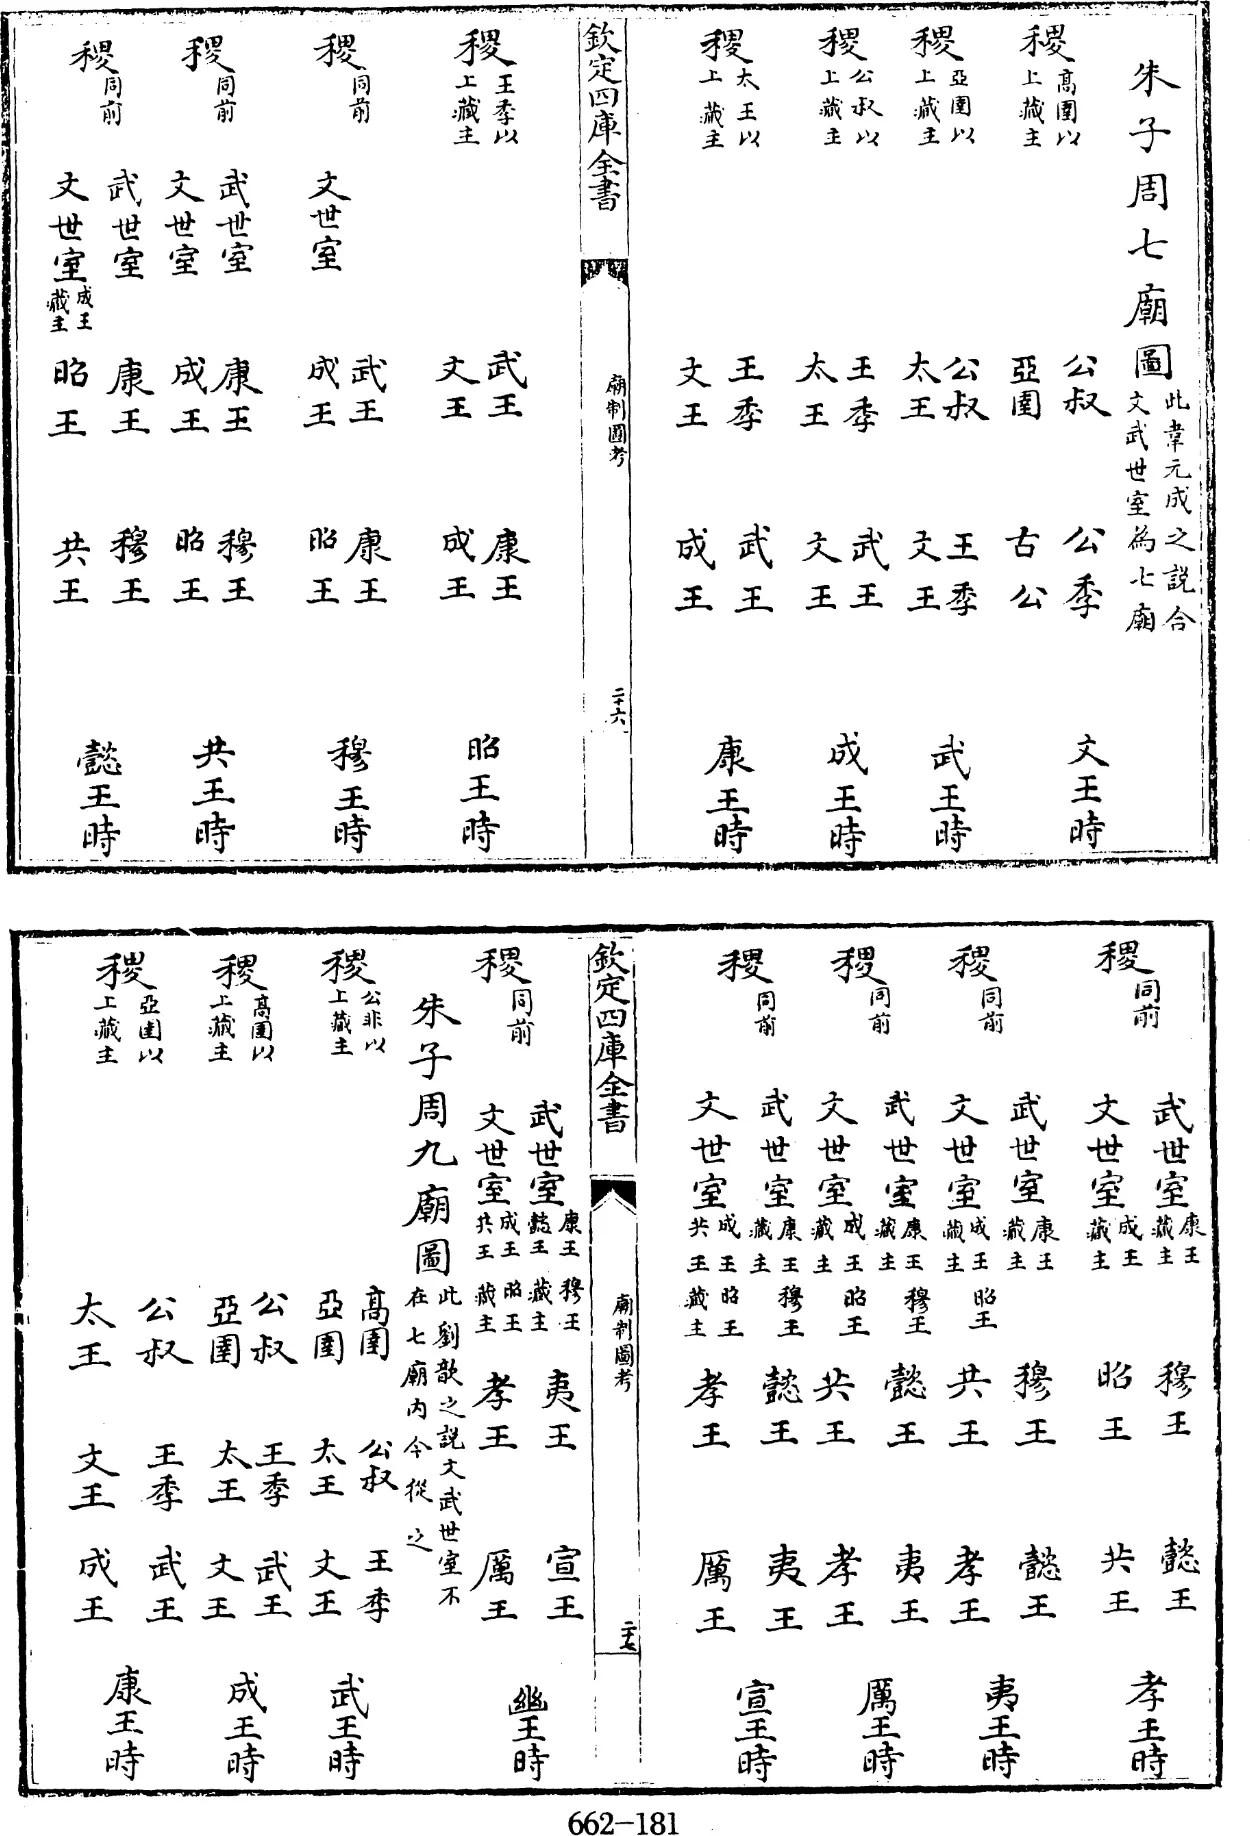 朱子周七廟圖 此韋元成之説合文武世室為七廟
稷 高圉以上藏主
公叔 公季
亞圉 古公
文王時
稷 亞圉以上藏主
公叔 王季
太王 文王
武王時
稷 公叔以上藏主
王季 武王
太王 文王
成王時
稷 太王以上藏主
王季 武王
文王 成王
康王時
欽定四庫全書 廟制圖考 二十六
稷 王季以上藏主
武王 康王
文王 成王
昭王時
稷 同前
武王 康王
文世室 成王 昭王
穆王時
稷 同前
武世室 康王 穆王
文世室 成王 昭王
共王時
稷 同前
武世室 康王 穆王
文世室 成王藏主 昭王 共王
懿王時
稷 同前
武世室 康王藏主 穆王 懿王
文世室 成王藏主 昭王 共王
孝王時
稷 同前
武世室 康王藏主 穆王 懿王
文世室 成王昭王藏主 共王 孝王
夷王時
稷 同前
武世室 康王穆王藏主 懿王 夷王
文世室 成王昭王藏主 共王 孝王
厲王時
稷 同前
武世室 康王穆王藏主 懿王 夷王
文世室 成王昭王共王藏主 孝王 厲王
宣王時
欽定四庫全書 廟制圖考 二十七
稷 同前
武世室 康王穆王懿王藏主 夷王 宣王
文世室 成王昭王共王藏主 孝王 厲王
幽王時
朱子周九廟圖 此劉歆之説文武世室不在七廟内今從之
稷 公非以上藏主
高圉 公叔 王季
亞圉 太王 文王
武王時
稷 高圉以上藏主
公叔 王季 武王
亞圉 太王 文王
成王時
稷 亞圉以上藏主
公叔 王季 武王
太王 文王 成王
康王時
662-181